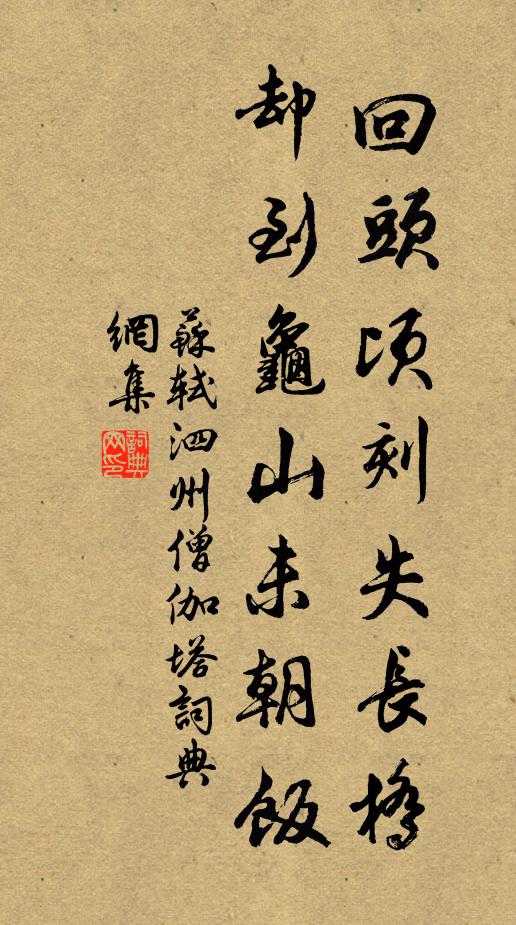 回頭頃刻失長橋
却到龜山未朝飯
蘇軾泗州僧伽塔詞典
網集
詞典
网印